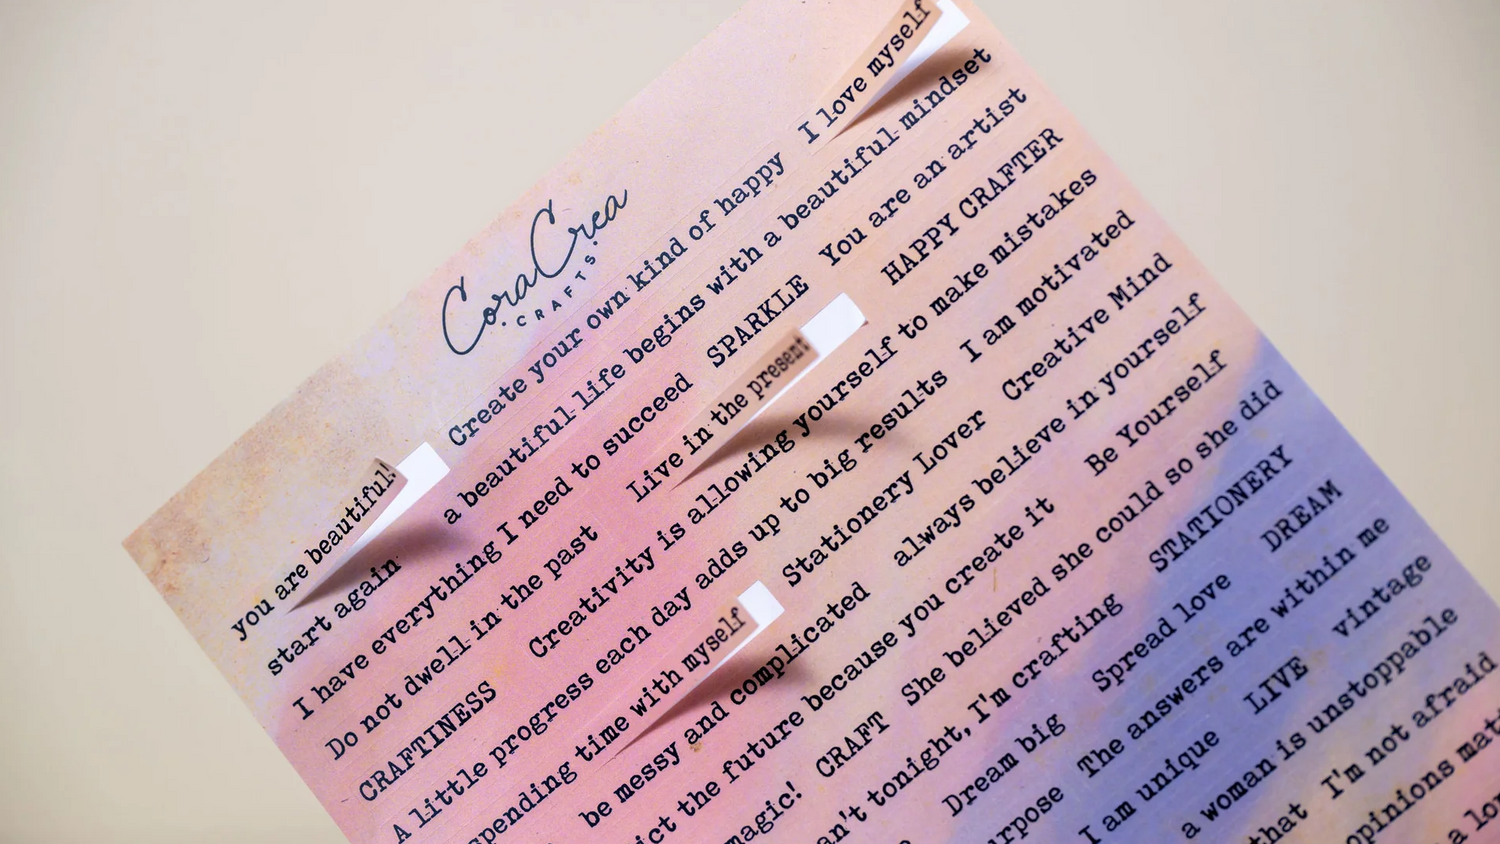 CoraCrea
CRAFTS
you are beautiful! Create your own kind of happy I love myself
start again a beautiful life begins with a beautiful mindset
I have everything I need to succeed SPARKLE You are an artist
Do not dwell in the past Live in the present HAPPY CRAFTER
CRAFTINESS Creativity is allowing yourself to make mistakes
A little progress each day adds up to big results I am motivated
spending time with myself Stationery Lover Creative Mind
be messy and complicated always believe in yourself
ict the future because you create it Be Yourself
magic! CRAFT She believed she could so she did
an't tonight, I'm crafting STATIONERY
Dream big Spread love DREAM
urpose The answers are within me
I am unique LIVE vintage
a woman is unstoppable
that I'm not afraid
opinions matt
a lo